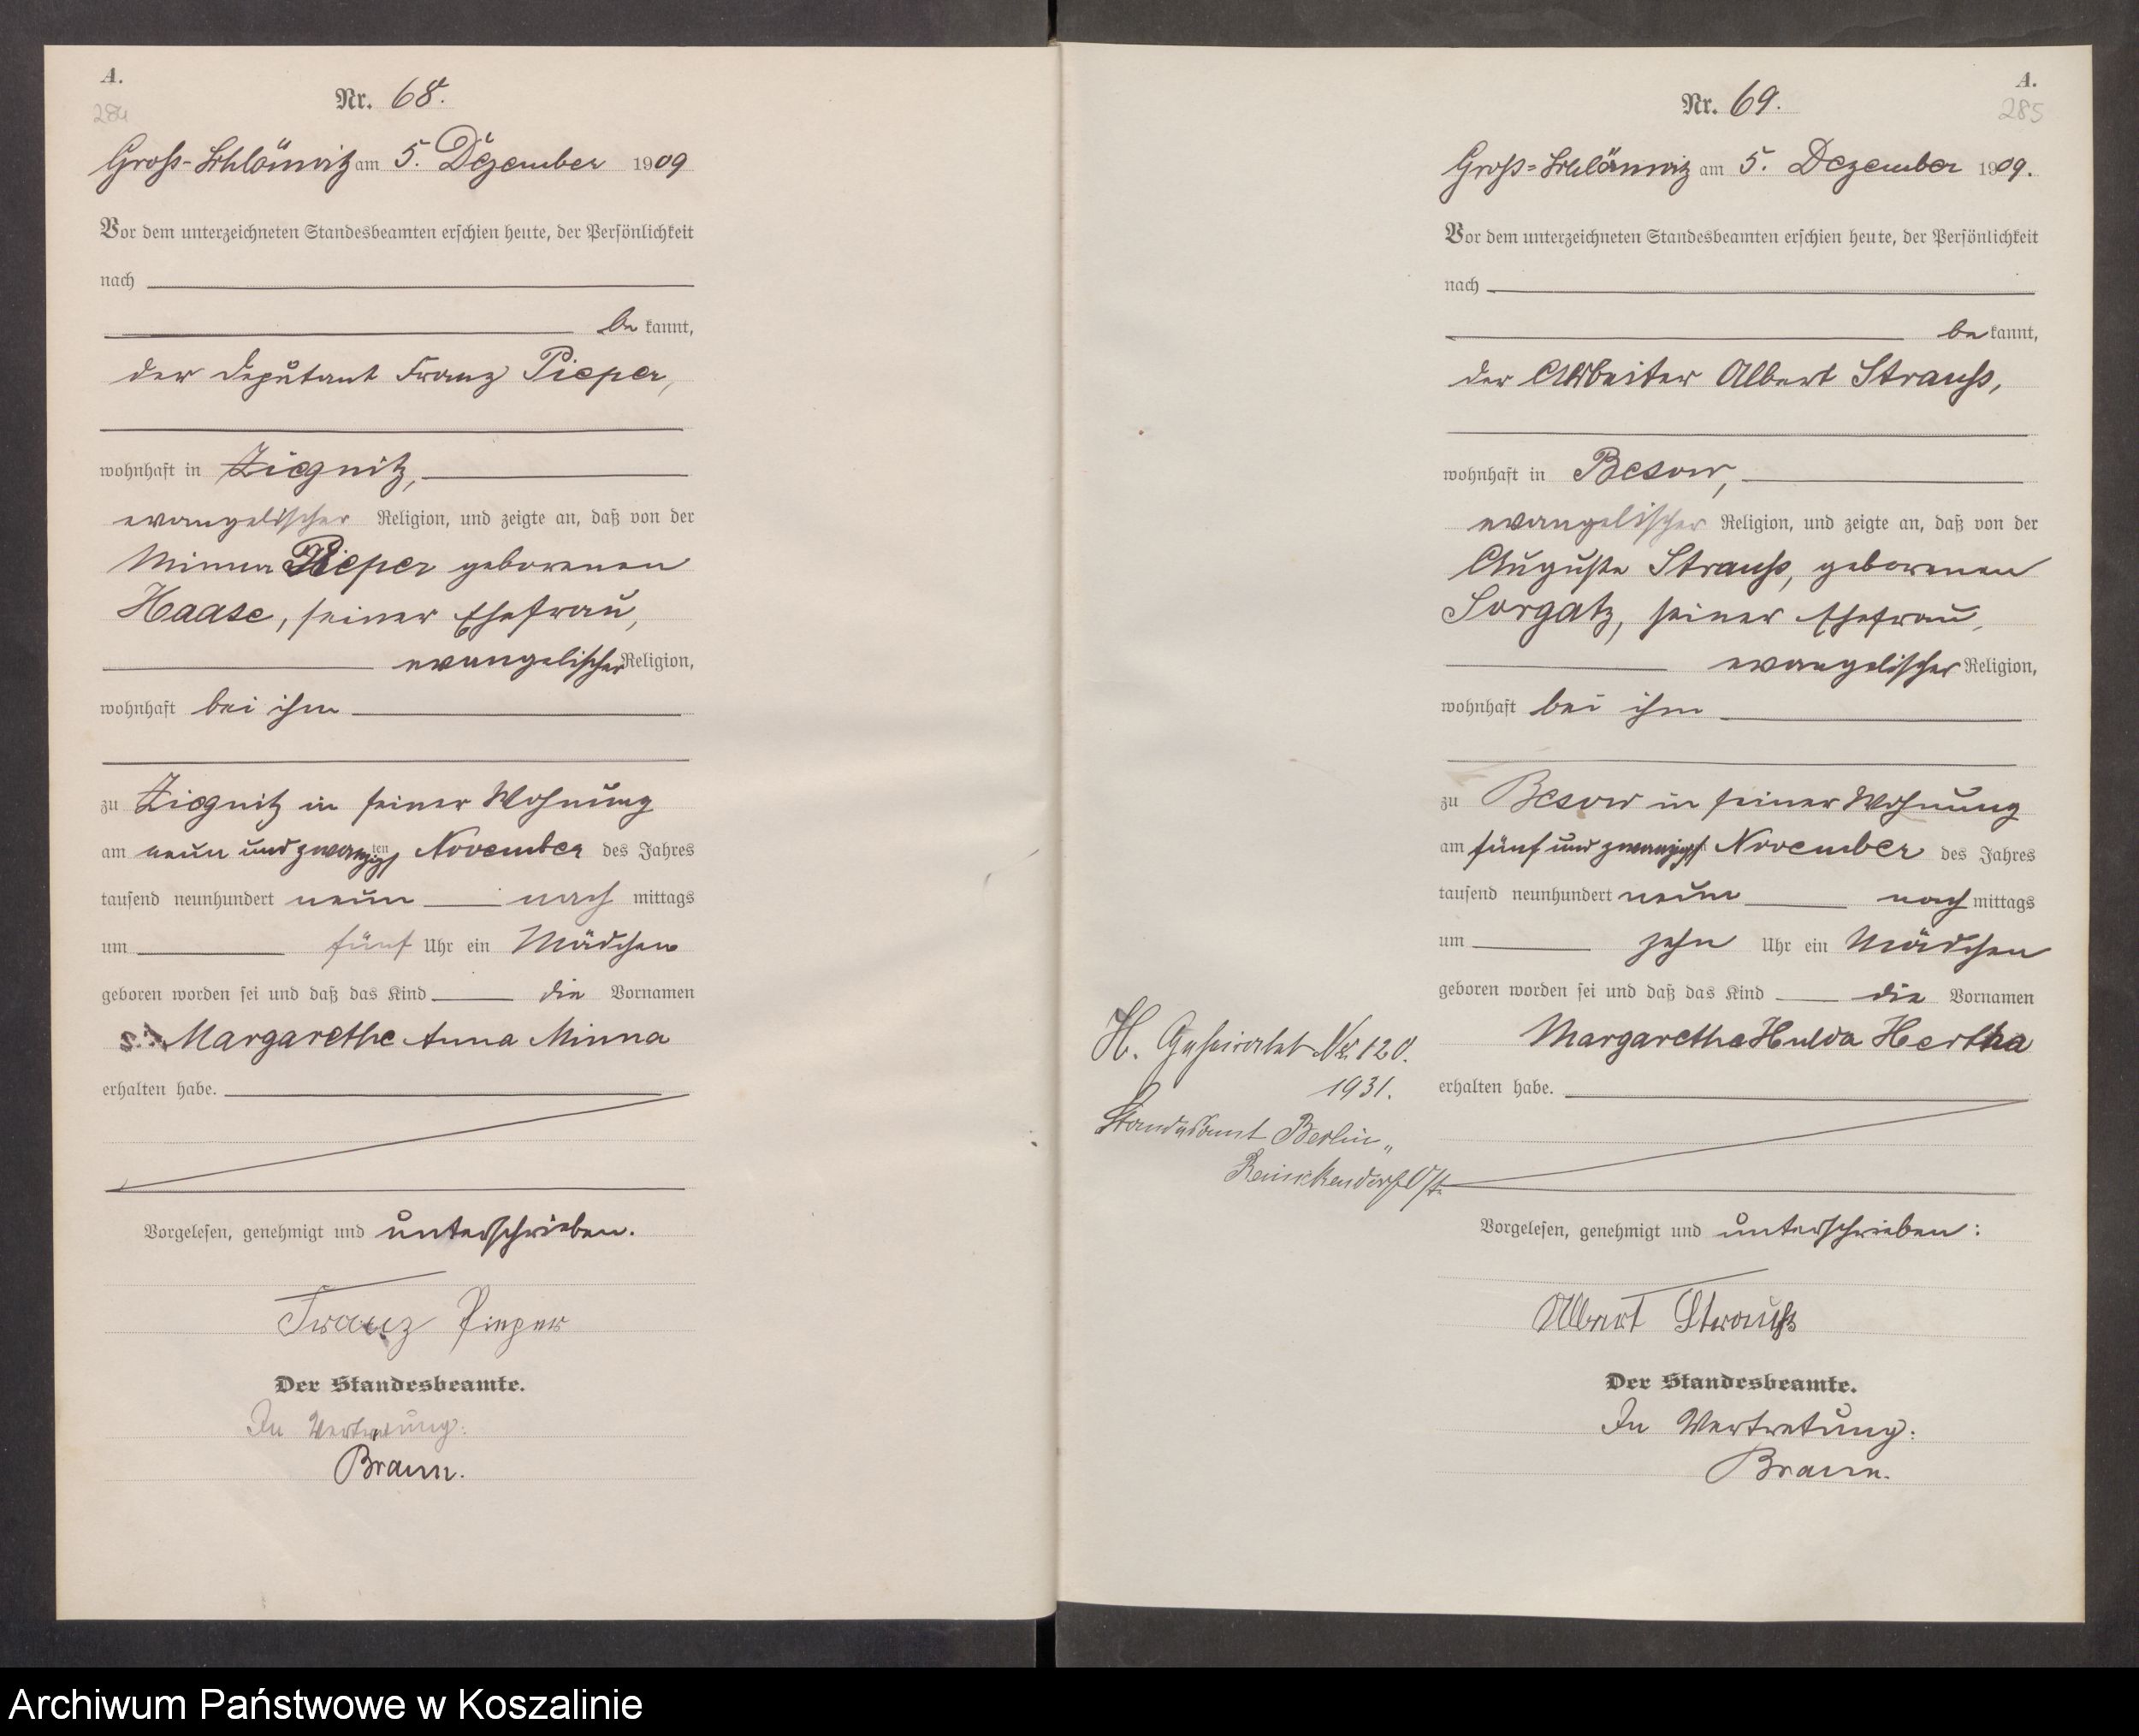 A.
284
Nr. 68.
Gross-Schlönwitz am 5. Dezember 1909
Vor dem unterzeichneten Standesbeamten erschien heute, der Persönlichkeit
nach
be kannt,
der Deputant Franz Pieper,
wohnhaft in Ziegnitz,
evangelischer Religion, und zeigte an, daß von der
Minna Pieper geborenen
Haase, seiner Ehefrau,
evangelischer Religion,
wohnhaft bei ihm
zu Ziegnitz in seiner Wohnung
am neun und zwanzigsten November des Jahres
tausend neunhundert neun nach mittags
um fünf Uhr ein Mädchen
geboren worden sei und daß das Kind die Vornamen
Margarethe Anna Minna
erhalten habe.
Vorgelesen, genehmigt und unterschrieben.
Franz Pieper
Der Standesbeamte.
In Vertretung:
Braun.
A.
285
Nr. 69.
Gross-Schlönwitz am 5. Dezember 1909.
Vor dem unterzeichneten Standesbeamten erschien heute, der Persönlichkeit
nach
be kannt,
der Arbeiter Albert Strauss,
wohnhaft in Besow,
evangelischer Religion, und zeigte an, daß von der
Auguste Strauss, geborenen
Sorgatz, seiner Ehefrau,
evangelischer Religion,
wohnhaft bei ihm
zu Besow in seiner Wohnung
am fünf und zwanzigsten November des Jahres
tausend neunhundert neun nach mittags
um zehn Uhr ein Mädchen
geboren worden sei und daß das Kind die Vornamen
Margarethe Hulda Hertha
erhalten habe.
H. Geheiratet Nr. 120.
1931.
Standesamt Berlin-
Reinickendorf
Vorgelesen, genehmigt und unterschrieben:
Albert Strauss
Der Standesbeamte.
In Vertretung:
Braun.
Archiwum Państwowe w Koszalinie